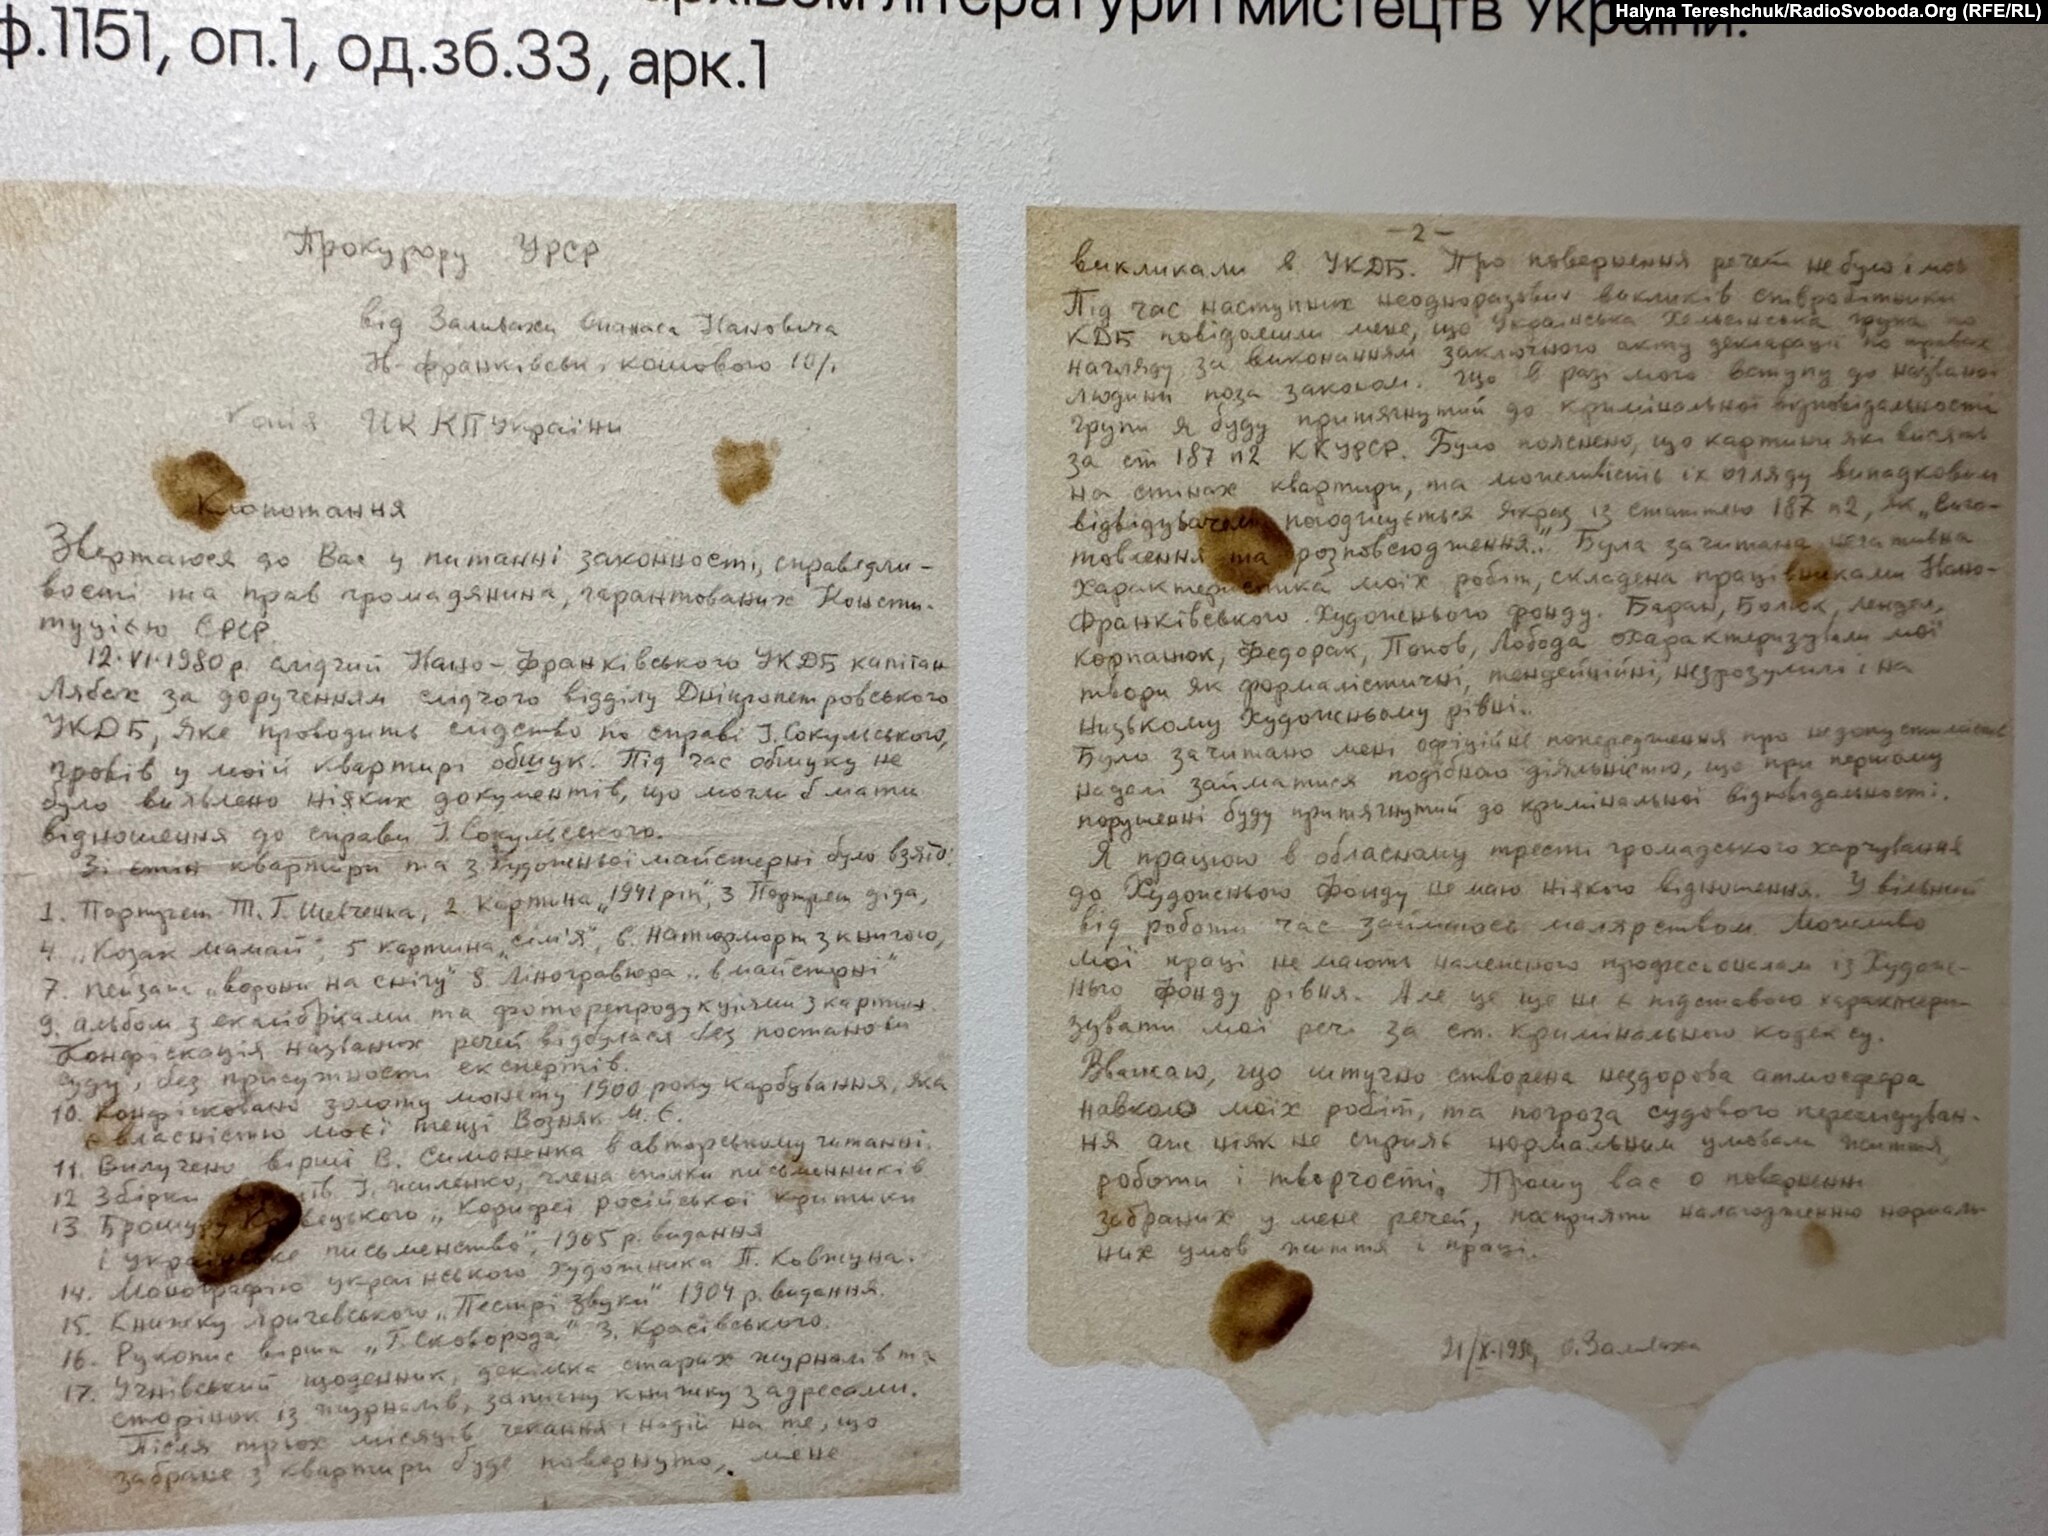 архівом літератури і мистецтв України.
Halyna Tereshchuk/RadioSvoboda.Org (RFE/RL)
ф.1151, оп.1, од.зб.33, арк.1
Прокурору УРСР
від Заливахи Опанаса Івановича
Ів-Франківськ, кошового 10/1
копія ЦК КП України
Клопотання
Звертаюся до Вас у питанні законності, справедли-
вості та прав громадянина, гарантованих Консти-
туцією СРСР.
12·VI·1980 р. слідчий Івано-Франківського УКДБ капітан
Лябах за дорученням слідчого відділу Дніпропетровського
УКДБ, яке проводить слідство по справі І. Сокульського,
провів у моїй квартирі обшук. Під час обшуку не
було виявлено ніяких документів, що могли б мати
відношення до справи І. Сокульського.
Зі стін квартири та з художньої майстерні було взято:
1. Портрет Т.Г. Шевченка, 2. Картина „1941 рік", 3 Портрет діда,
4. „Козак мамай", 5 картина „сім'я", 6. натюрморт з книгою,
7. пейзаж „ворони на снігу" 8. Ліногравюра „в майстерні"
9. альбом з екслібрісами та фоторепродукціями з картин.
Конфіскація названих речей відбулася без постанови
суду, без присутності експертів.
10. Конфісковано золоту монету 1900 року карбування, яка
є власністю моєї тещі Возняк М. Є.
11. Вилучено вірші В. Симоненка в авторському читанні.
12 Збірки І. Жиленко, члена спілки письменників
13 Брошуру „Корифеї російської критики
і українське письменство", 1905 р. видання
14. Монографію українського художника П. Ковжуна.
15. Книжку Яричевського „Пестрі звуки" 1904 р. видання.
16. Рукопис вірша „Г. Сковорода" З. Красівського.
17. Учнівський щоденник, декілька старих журналів та
сторінок із журналів, записну книжку з адресами.
Після трьох місяців чекання і надій на те, що
забране з квартири буде повернуто, мене
-2-
викликали в УКДБ. Про повернення речей не було і мов
Під час наступних неодноразових викликів співробітники
КДБ повідомили мене, що Українська Хельсінська група по
нагляду за виконанням заключного акту декларації по правах
людини поза законом. Що в разі мого вступу до названої
групи я буду притягнутий до кримінальної відповідальності
за ст 187 п2 ККУРСР. Було пояснено, що картини які висять
на стінах квартири, та можливість їх огляду випадковим
відвідувачем, як „виго-
товлення та розповсюдження". Була зачитана негативна
характеристика моїх робіт, складена працівниками Івано-
Франківського Художнього фонду. Баран, Болюк, Лендєл,
Корпанюк, Федорак, Попов, Лобода охарактеризували мої
твори як формалістичні, тенденційні, незрозумілі і на
низькому художньому рівні.
Було зачитано мені офіційне попередження про недопустимість
надалі займатися подібною діяльністю, що при першому
порушенні буду притягнутий до кримінальної відповідальності.
Я працюю в обласному тресті громадського харчування
до Художнього фонду не маю ніякого відношення. У вільний
від роботи час займаюсь малярством. Можливо
мої праці не мають належного професіоналам із Худож-
нього фонду рівня. Але це ще не є підставою характери-
зувати мої речі за ст. кримінального кодексу.
Вважаю, що штучно створена нездорова атмосфера
навколо моїх робіт, та погроза судового переслідуван-
ня аж ніяк не сприяє нормальним умовам життя,
роботи і творчості. Прошу вас о повернення
забраних у мене речей, посприяти налагодженню нормаль-
них умов життя і праці.
21/X·1980 О. Заливаха